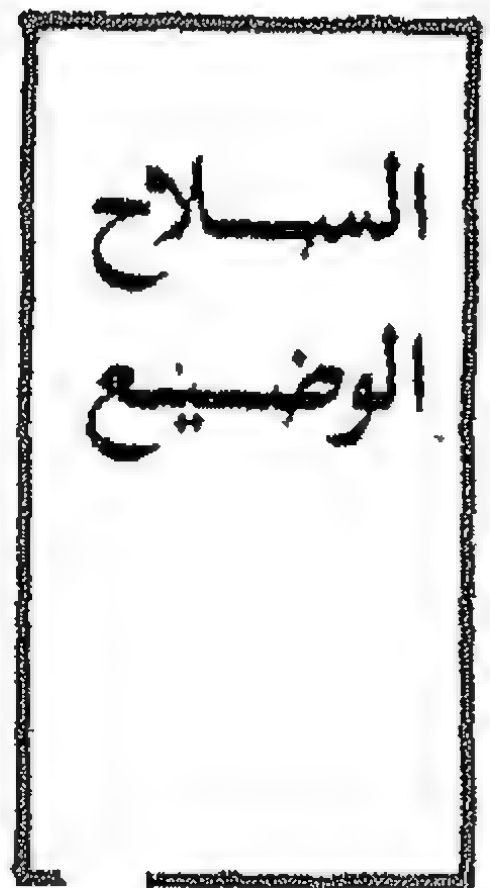 السلاح
الوضيع